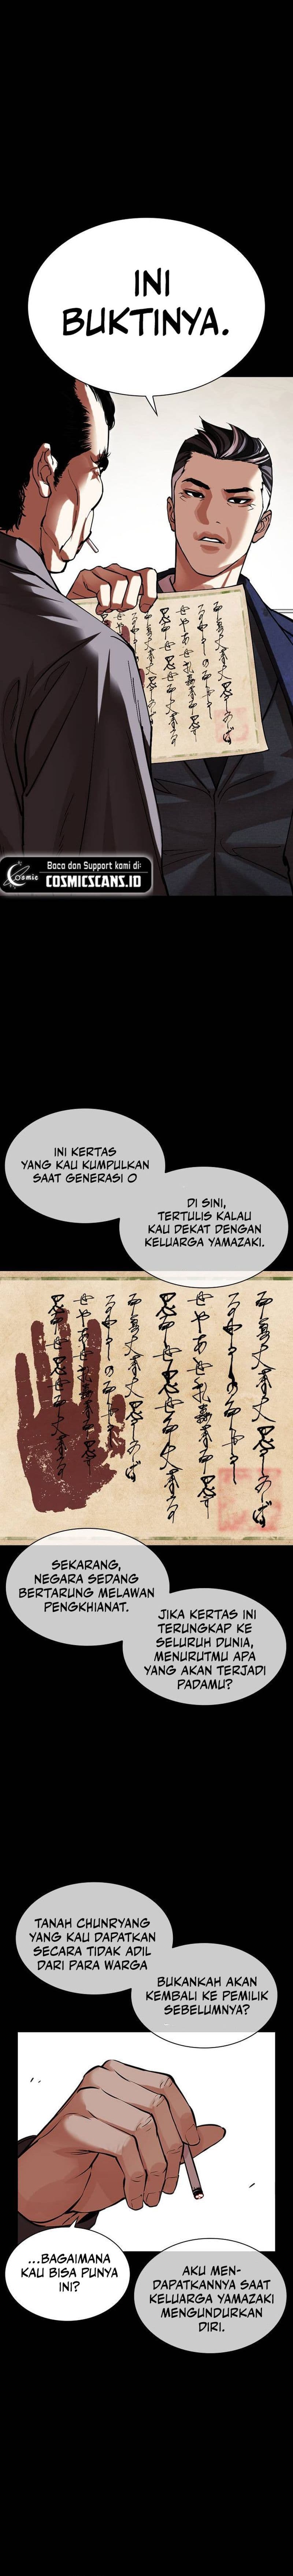 INI
BUKTINYA.
Baca dan Support kami di:
Cosmic
COSMICSCANS.ID
INI KERTAS
YANG KAU KUMPULKAN
SAAT GENERASI 0
DI SINI,
TERTULIS KALAU
KAU DEKAT DENGAN
KELUARGA YAMAZAKI.
SEKARANG,
NEGARA SEDANG
BERTARUNG MELAWAN
PENGKHIANAT.
JIKA KERTAS INI
TERUNGKAP KE
SELURUH DUNIA,
MENURUTMU APA
YANG AKAN TERJADI
PADAMU?
TANAH CHUNRYANG
YANG KAU DAPATKAN
SECARA TIDAK ADIL
DARI PARA WARGA
BUKANKAH AKAN
KEMBALI KE PEMILIK
SEBELUMNYA?
...BAGAIMANA
KAU BISA PUNYA
INI?
AKU MEN-
DAPATKANNYA SAAT
KELUARGA YAMAZAKI
MENGUNDURKAN
DIRI.